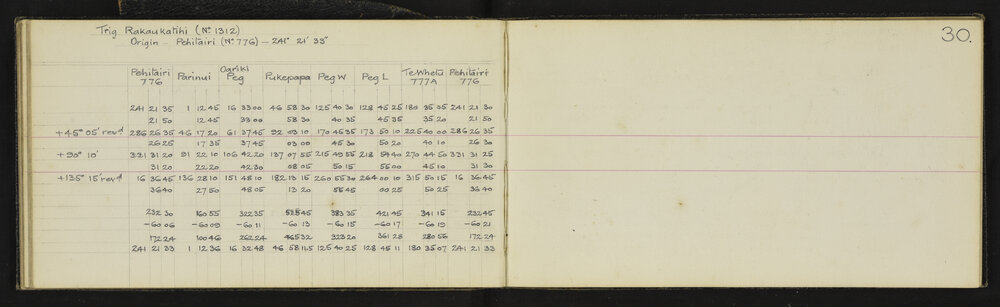 30.
Trig Rakaukatihi (No. 1312)
Origin - Pehitairi (No. 776) - 241° 21' 33"
Pehitairi 776 Parinui Oariki Peg Pukepapa Peg W Peg L Te Whetu 777A Pehitairi 776
241 21 35 1 12 45 16 33 00 46 58 30 125 40 30 128 45 25 180 35 05 241 21 30
21 50 12 45 33 00 58 30 40 35 45 35 35 20 21 50
+45° 05' rev'd 286 26 35 46 17 20 61 37 45 92 03 10 170 45 35 173 50 10 225 40 00 286 26 35
26 25 17 35 37 45 03 00 45 30 50 20 40 10 26 30
+90° 10' 331 31 20 91 22 10 106 42 20 137 07 55 215 49 55 218 54 40 270 44 50 331 31 25
31 20 22 20 42 30 08 05 50 15 55 00 45 10 31 30
+135° 15' rev'd 16 36 45 136 28 10 151 48 10 182 13 15 260 55 30 264 00 10 315 50 15 16 36 45
36 40 27 50 48 05 13 20 55 45 00 25 50 25 36 40
232 30 160 55 322 35 525 45 383 35 421 45 341 15 232 45
-60 06 -60 09 -60 11 -60 13 -60 15 -60 17 -60 19 -60 21
172 24 100 46 262 24 465 32 323 20 361 28 280 56 172 24
241 21 33 1 12 36 16 32 48 46 58 11.5 125 40 25 128 45 11 180 35 07 241 21 33